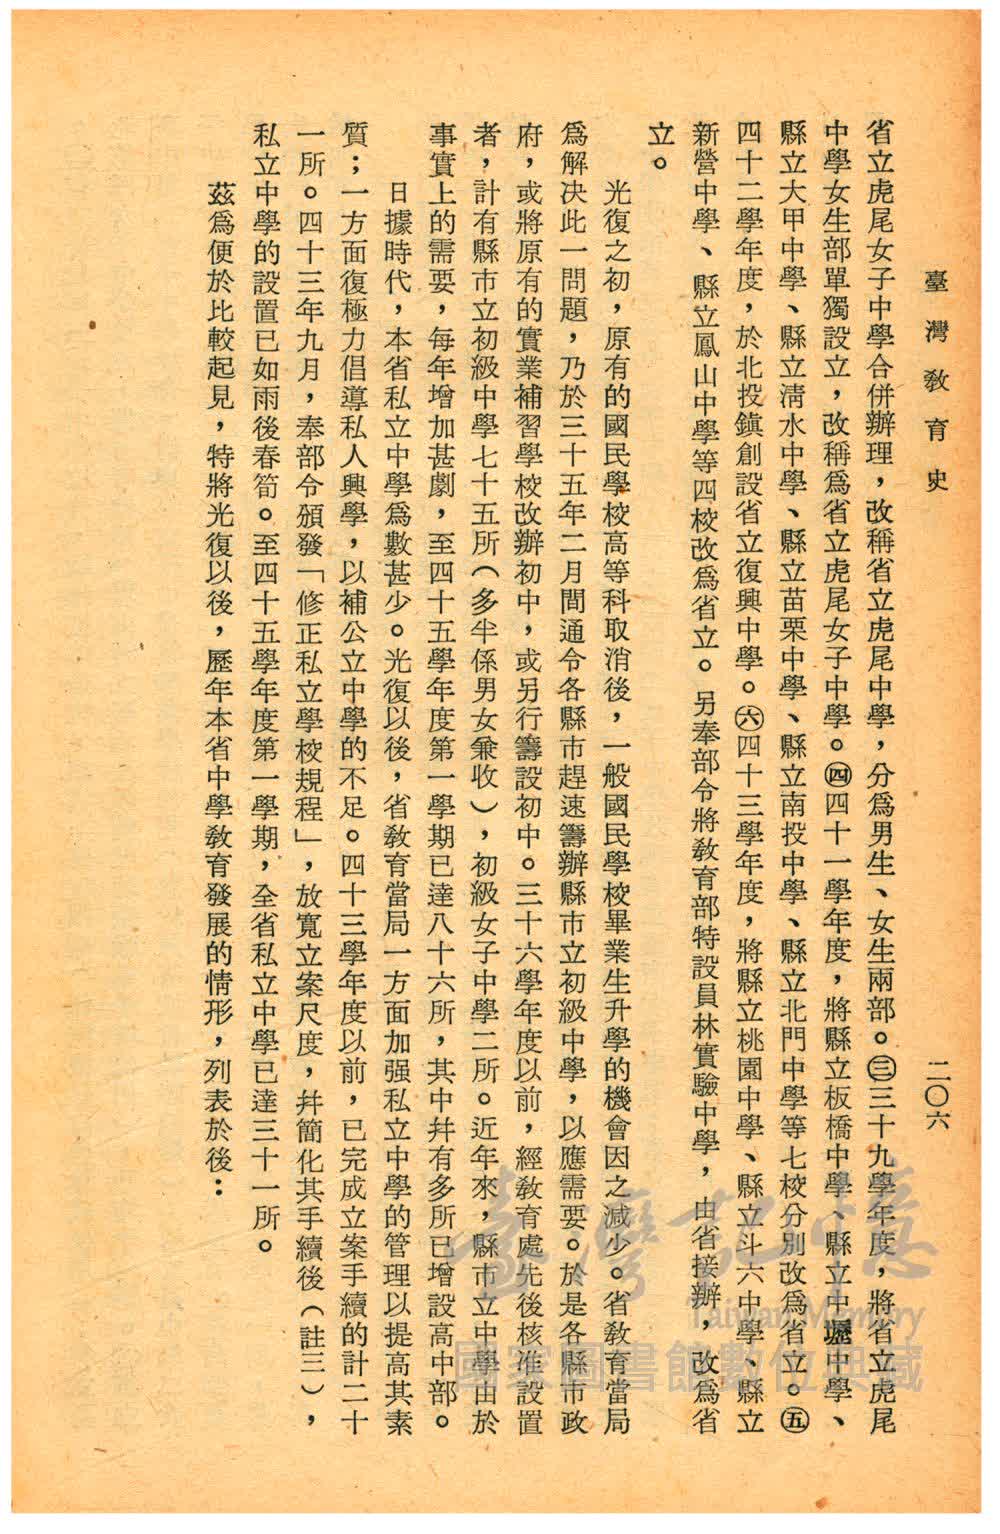 臺灣教育史
二〇六
省立虎尾女子中學合併辦理，改稱省立虎尾中學，分爲男生、女生兩部。㊂三十九學年度，將省立虎尾
中學女生部單獨設立，改稱爲省立虎尾女子中學。㊃四十一學年度，將縣立板橋中學、縣立中壢中學、
縣立大甲中學、縣立淸水中學、縣立苗栗中學、縣立南投中學、縣立北門中學等七校分別改爲省立。㊄
四十二學年度，於北投鎭創設省立復興中學。㊅四十三學年度，將縣立桃園中學、縣立斗六中學、縣立
新營中學、縣立鳳山中學等四校改爲省立。另奉部令將敎育部特設員林實驗中學，由省接辦，改爲省
立。
光復之初，原有的國民學校高等科取消後，一般國民學校畢業生升學的機會因之減少。省敎育當局
爲解決此一問題，乃於三十五年二月間通令各縣市趕速籌辦縣市立初級中學，以應需要。於是各縣市政
府，或將原有的實業補習學校改辦初中，或另行籌設初中。三十六學年度以前，經敎育處先後核准設置
者，計有縣市立初級中學七十五所（多半係男女兼收），初級女子中學二所。近年來，縣市立中學由於
事實上的需要，每年增加甚劇，至四十五學年度第一學期已達八十六所，其中幷有多所已增設高中部。
日據時代，本省私立中學爲數甚少。光復以後，省敎育當局一方面加强私立中學的管理以提高其素
質；一方面復極力倡導私人興學，以補公立中學的不足。四十三學年度以前，已完成立案手續的計二十
一所。四十三年九月，奉部令頒發「修正私立學校規程」，放寬立案尺度，幷簡化其手續後（註三），
私立中學的設置已如雨後春筍。至四十五學年度第一學期，全省私立中學已達三十一所。
茲爲便於比較起見，特將光復以後，歷年本省中學敎育發展的情形，列表於後：
臺灣記憶
Taiwan Memory
國家圖書館數位典藏